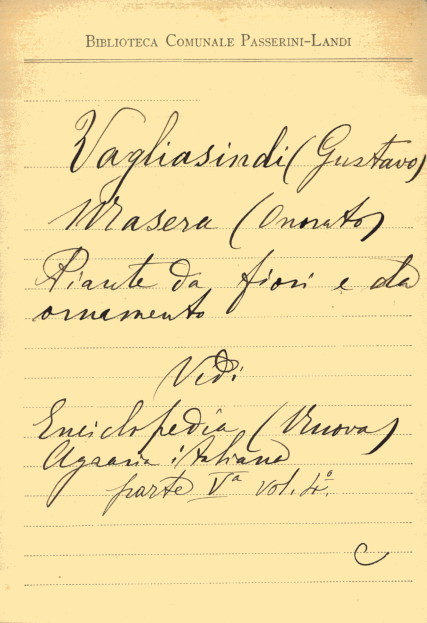 BIBLIOTECA COMUNALE PASSERINI-LANDI
Vagliasindi (Gustavo)
Masera (Onorato)
Piante da fiori e da
ornamento
Vedi
Enciclopedia (Nuova)
Agraria italiana
parte Vª vol. 4º.
C